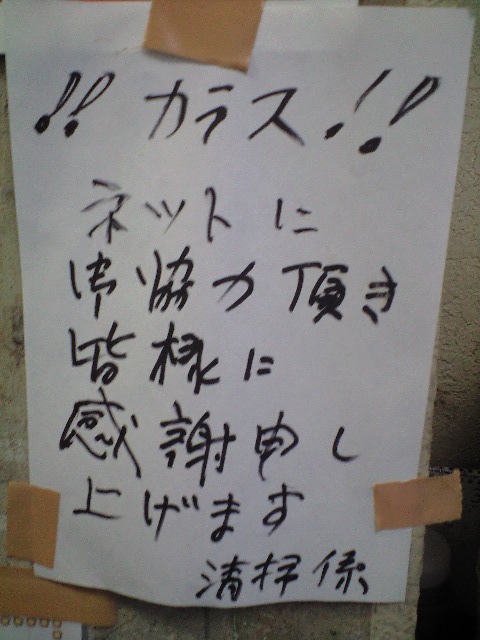 !! カラス!!
ネットに
御協力頂き
皆様に
感謝申し
上げます
清掃係